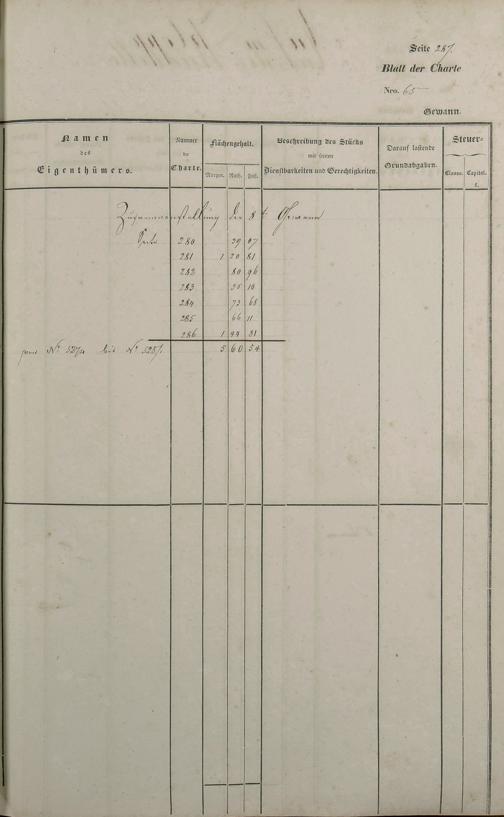 Seite 287.
Blatt der Charte
Nro. 65
Gewann.
Namen des Eigenthümers.
Nummer der Charte.
Flächengehalt.
Morgen. Ruth. Fuß.
Beschreibung des Stücks mit seinen Dienstbarkeiten und Gerechtigkeiten.
Darauf lastende Grundabgaben.
Steuer-
Classe. Capital.
f.
Zusammenstellung der 8t Gewann
Seite 280 29 07
281 1 20 81
282 80 96
283
284 73 68
285 66 11
286 1 44 31
N° bis N° 5 60 54